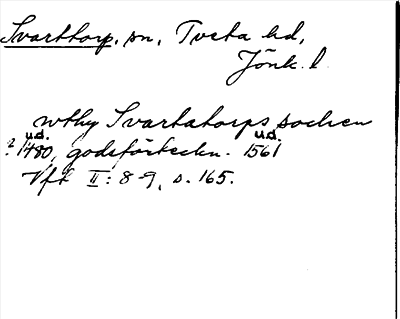 Svarttorp, sn, Tveta hd,
Jönk. l.
wthy Svartatorps sochen
u.d. u.d.
? 1480, godsförteckn. 1561
Vft II: 8-9, s. 165.